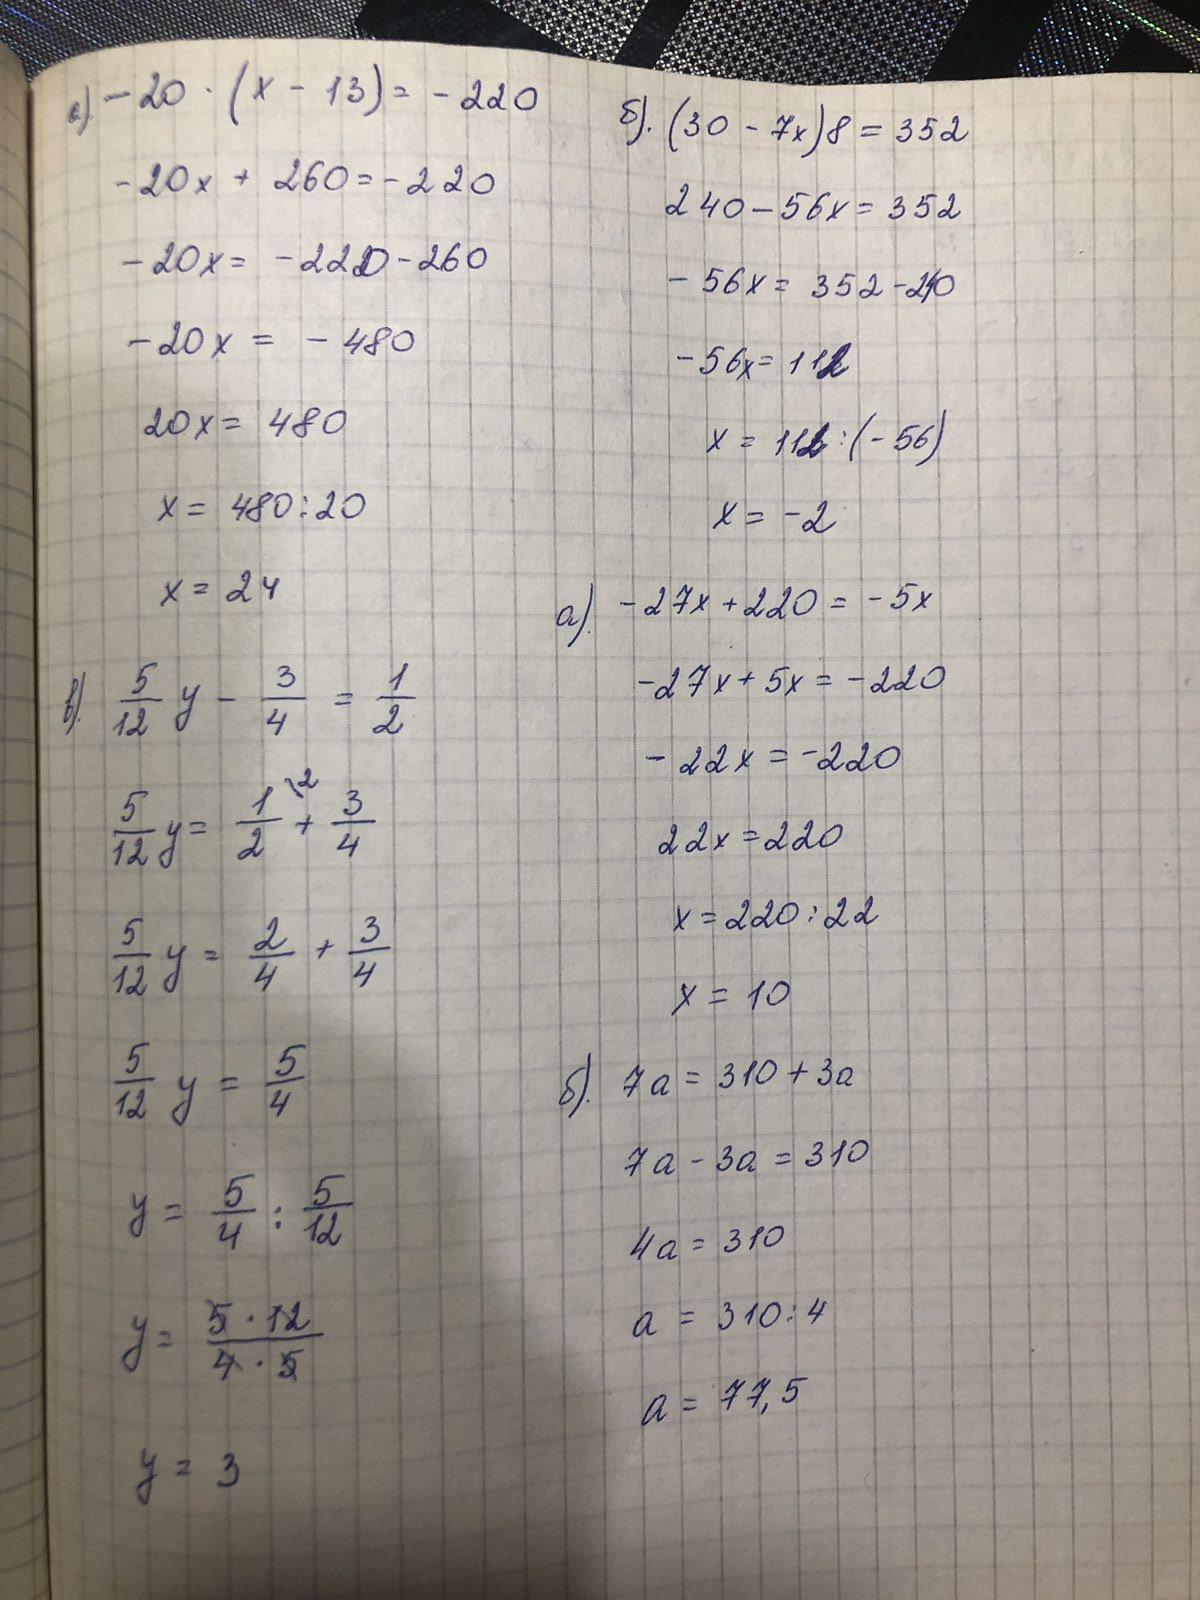 а). -20 · (x - 13) = -220
-20x + 260 = -220
-20x = -220 - 260
-20x = -480
20x = 480
x = 480 : 20
x = 24
в). 5/12 y - 3/4 = 1/2
5/12 y = 1/2 \2 + 3/4
5/12 y = 2/4 + 3/4
5/12 y = 5/4
y = 5/4 : 5/12
y = 5 · 12 / 4 · 5
y = 3
б). (30 - 7x)8 = 352
240 - 56x = 352
-56x = 352 - 240
-56x = 112
x = 112 : (-56)
x = -2
а). -27x + 220 = -5x
-27x + 5x = -220
-22x = -220
22x = 220
x = 220 : 22
x = 10
б). 7a = 310 + 3a
7a - 3a = 310
4a = 310
a = 310 : 4
a = 77,5